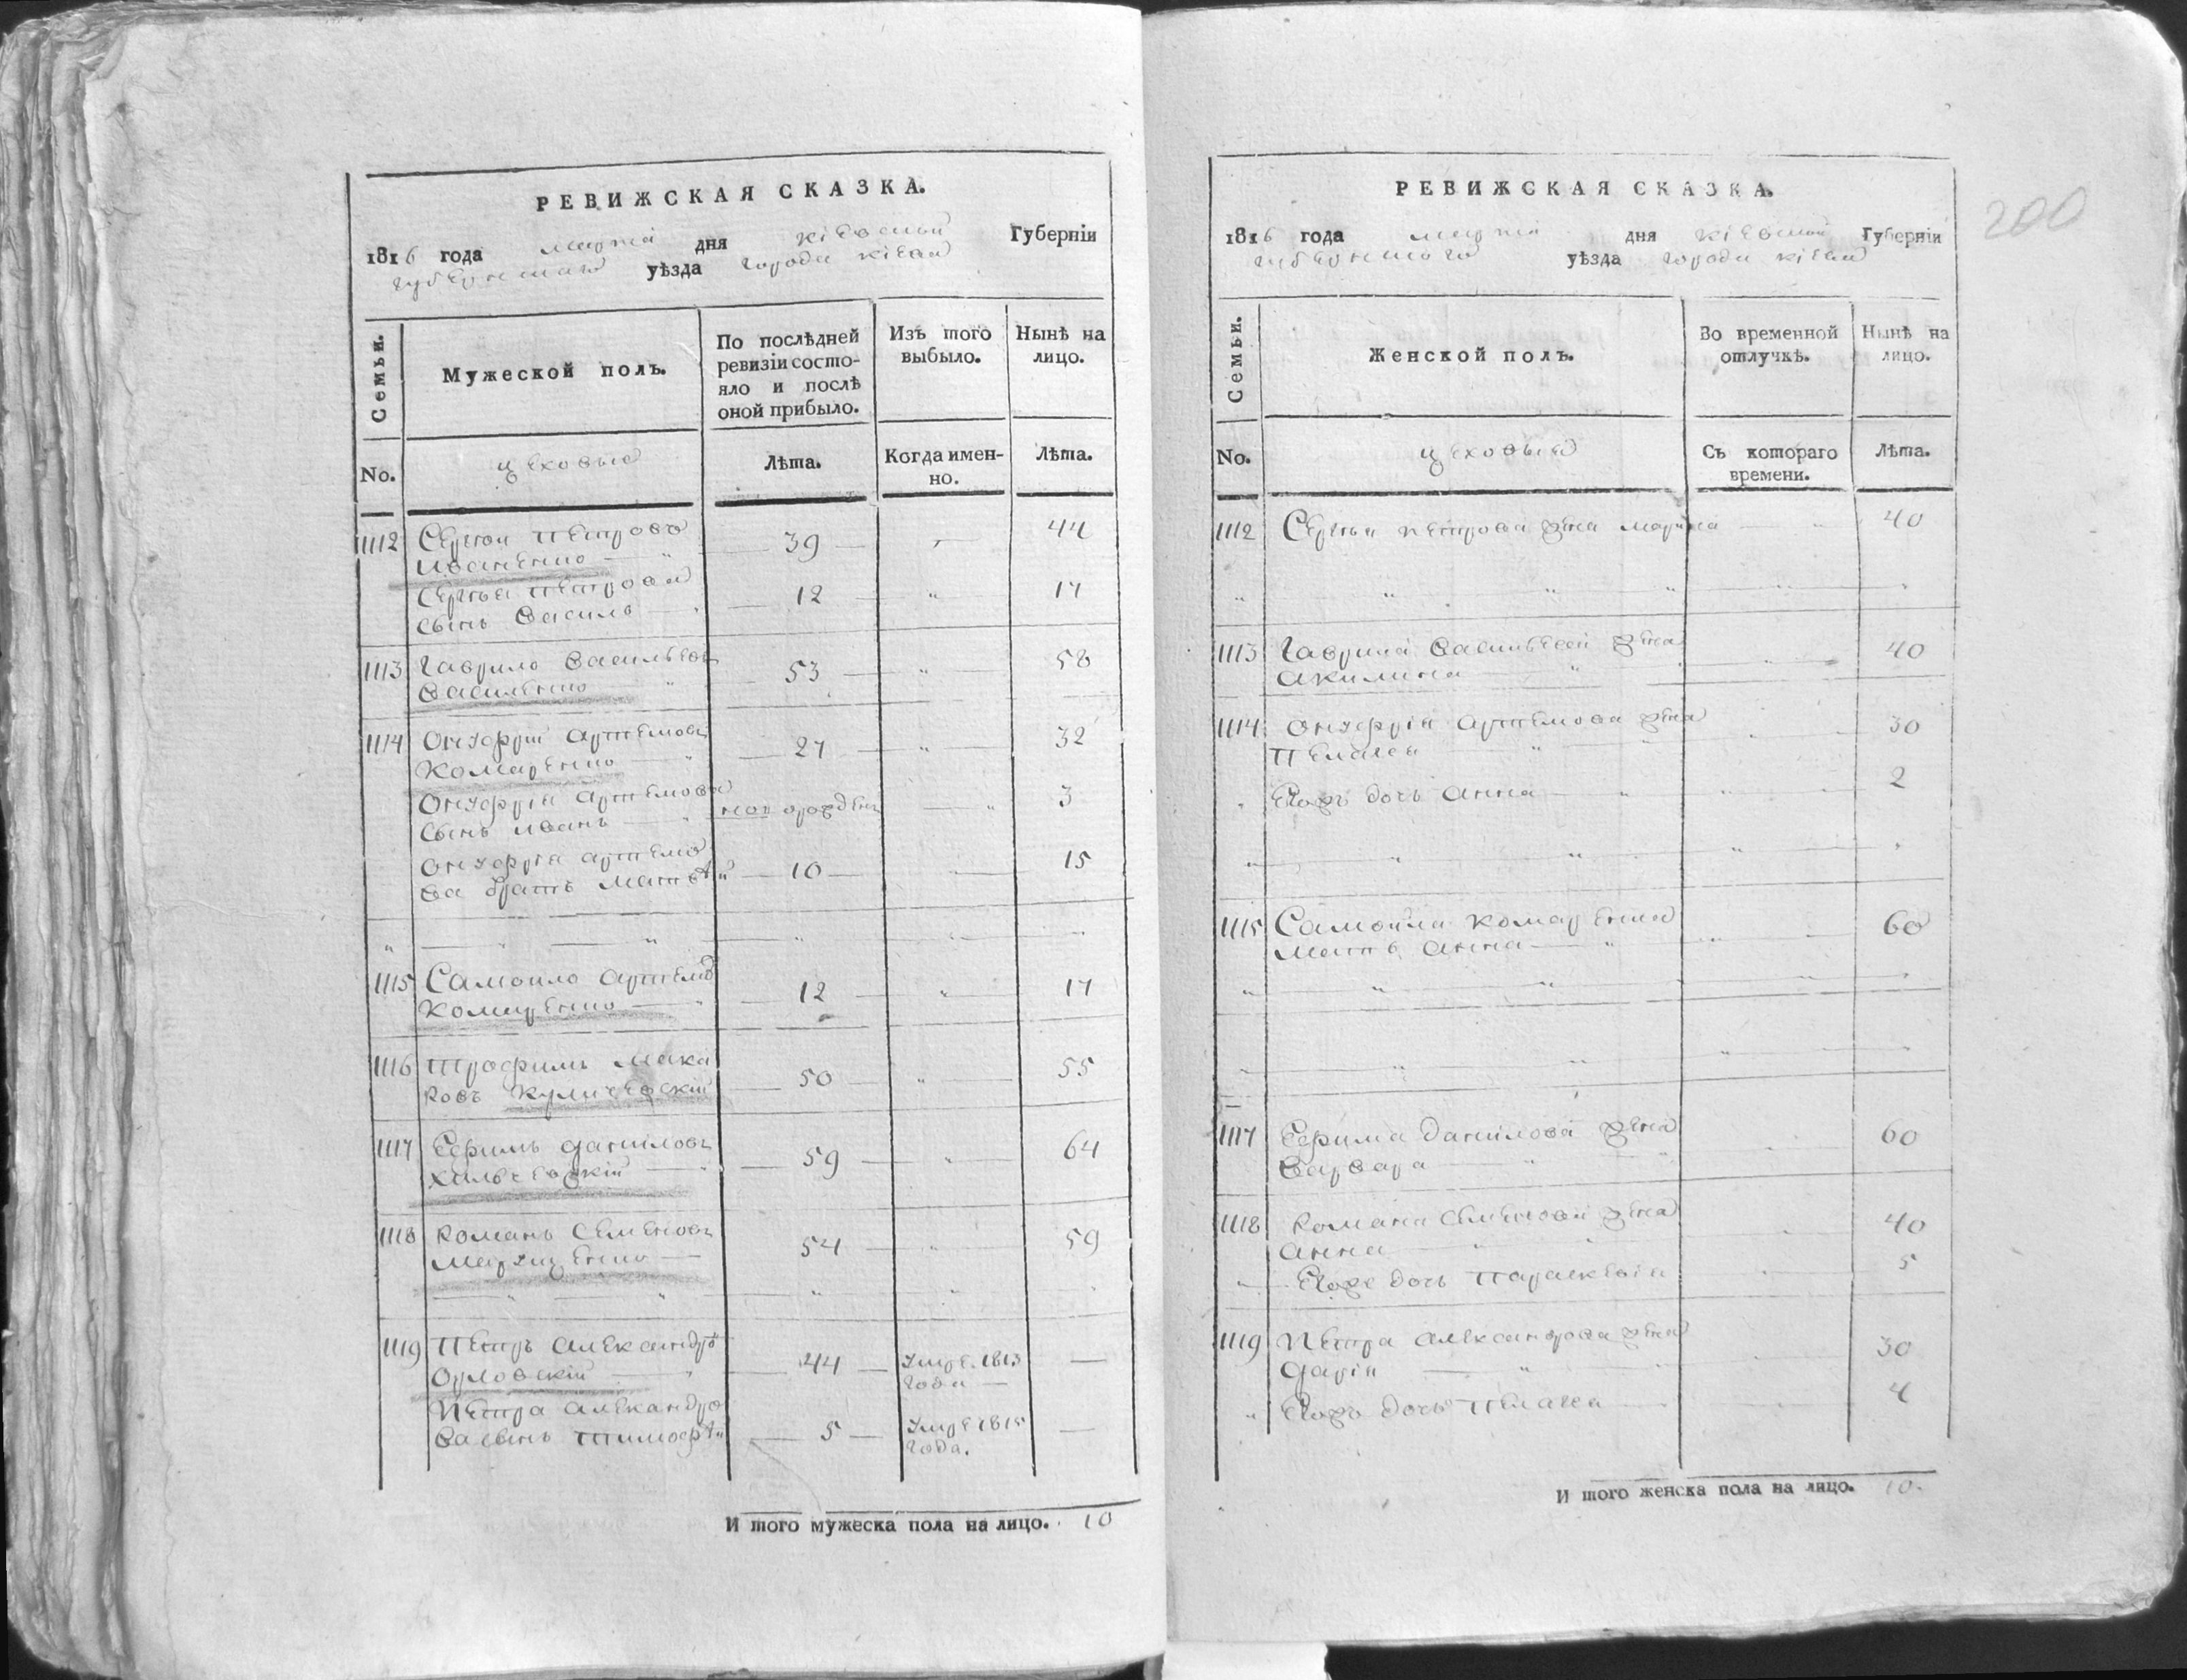 РЕВИЖСКАЯ СКАЗКА.
1816 года марта дня кіевской Губерніи
губернскаго уѣзда города кіева
Семьи.
Мужеской полъ.
По послѣдней ревизіи состо-
яло и послѣ
оной прибыло.
Изъ того
выбыло.
Нынѣ на
лицо.
No.
цеховые
Лѣта.
Когда имен-
но.
Лѣта.
1112 Сергѣй петровъ 39 44
иваненко
Сергѣя петрова 12 17
сынъ василь
1113 Гаврило васильевъ 53 58
василенко
1114 Онуфрій артемовъ 27 32
комаренко
Онуфрія артемова новорожденъ 3
сынъ иванъ
Онуфрія артемо 10 15
ва братъ матвѣй
1115 Самойло артемо 12 17
комаренко
1116 трофимъ мака 50 55
ровъ куличевскій
1117 Ефимъ даниловъ 59 64
хильчевскій
1118 Романъ семеновъ 54 59
марущенко
1119 петръ александро 44 умре. 1813 —
орловскій года —
петра алекандро
ва сынъ тимофѣй 5 умре 1815 —
года.
И того мужеска пола на лицо. 10
РЕВИЖСКАЯ СКАЗКА.
200
1816 года марта дня кіевской Губерніи
губернского уѣзда города кіева
Семьи.
Женской полъ.
Во временной
отлучкѣ.
Нынѣ на
лицо.
No.
цеховые
Съ котораго
времени.
Лѣта.
1112 Сергѣя петрова жена марина 40
1113 Гаврила васильева жена 40
акилина
1114 Онуфрія артемова жена 30
пелагея
Егожъ дочь анна 2
1115 Самойла комаренка 60
мать анна
1117 Ефима данилова жена 60
варвара
1118 Романа семенова жена 40
анна
Егоже дочь параскевія 5
1119 петра александрова жена 30
дарія
Егожъ дочь пелагея 4
И того женска пола на лицо. 10.